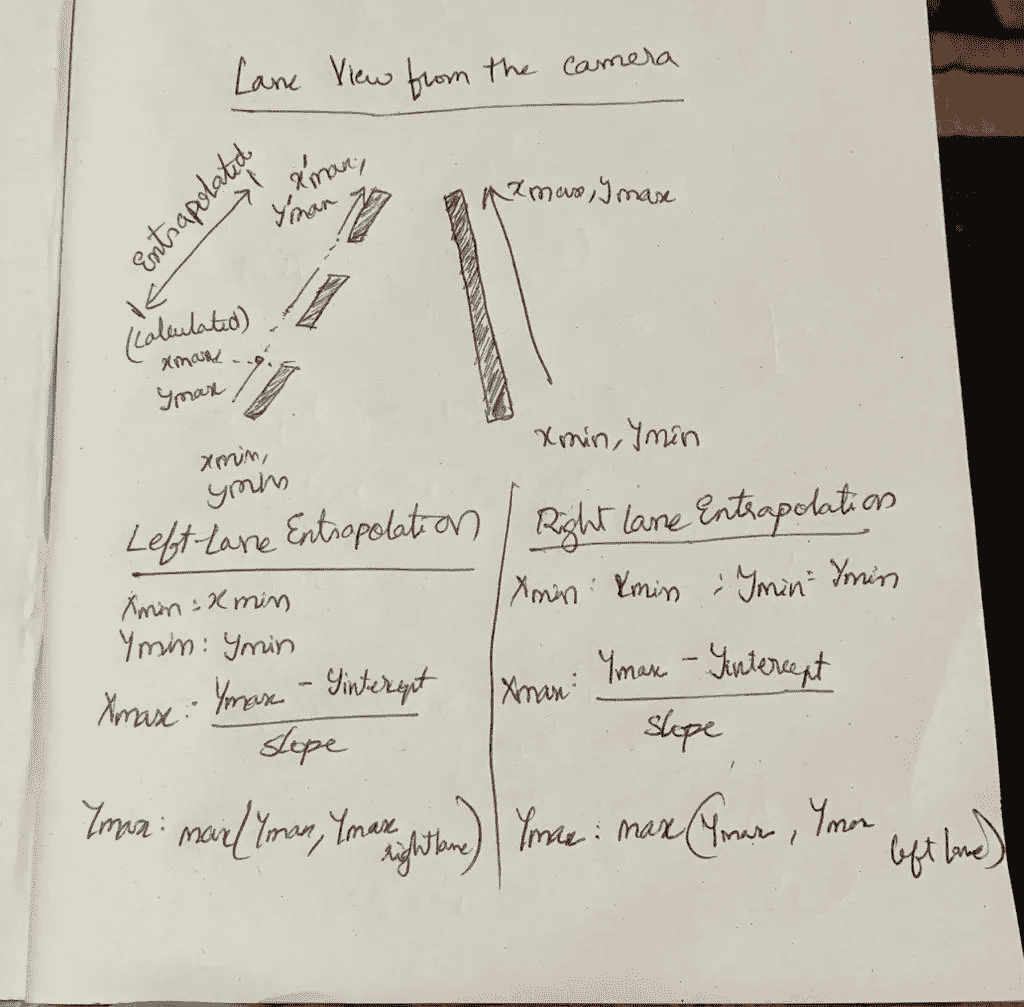 Lane View from the camera
Entrapolated
x'max,
y'max
xmax, ymax
(calculated)
xmax
ymax
xmin,
ymin
xmin, ymin
Left-Lane Entrapolation
Xmin : xmin
Ymin : ymin
Xmax : Ymax - Yintercept
slope
Ymax : max(Ymax, Ymax right lane)
Right lane Entrapolation
Xmin : Xmin ; Ymin = Ymin
Xmax : Ymax - Yintercept
slope
Ymax : max(Ymax, Ymax left lane)